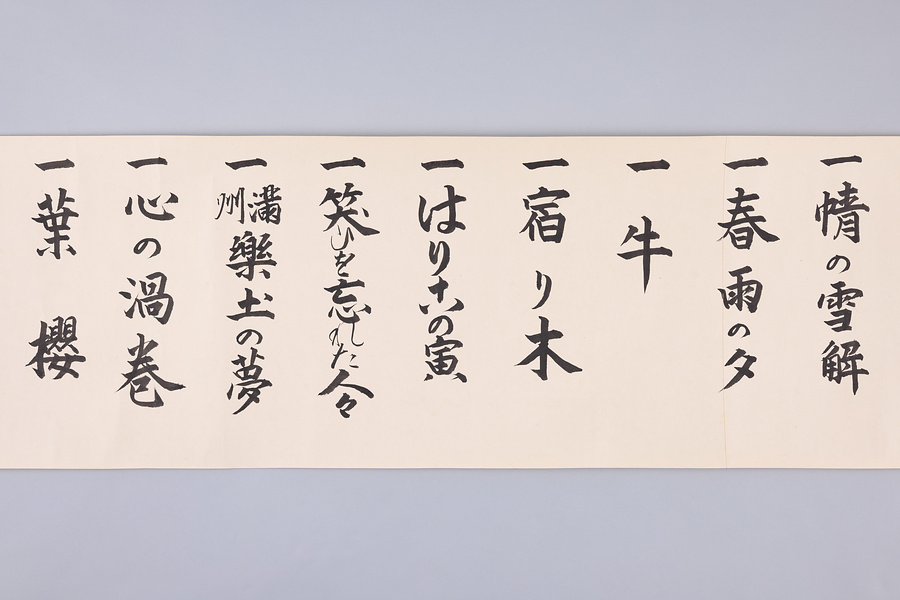 一 情の雪解
一 春雨の夕
一 牛
一 宿り木
一 はりこの寅
一 笑ひを忘れた人々
一 満州樂土の夢
一 心の渦巻
一 葉櫻